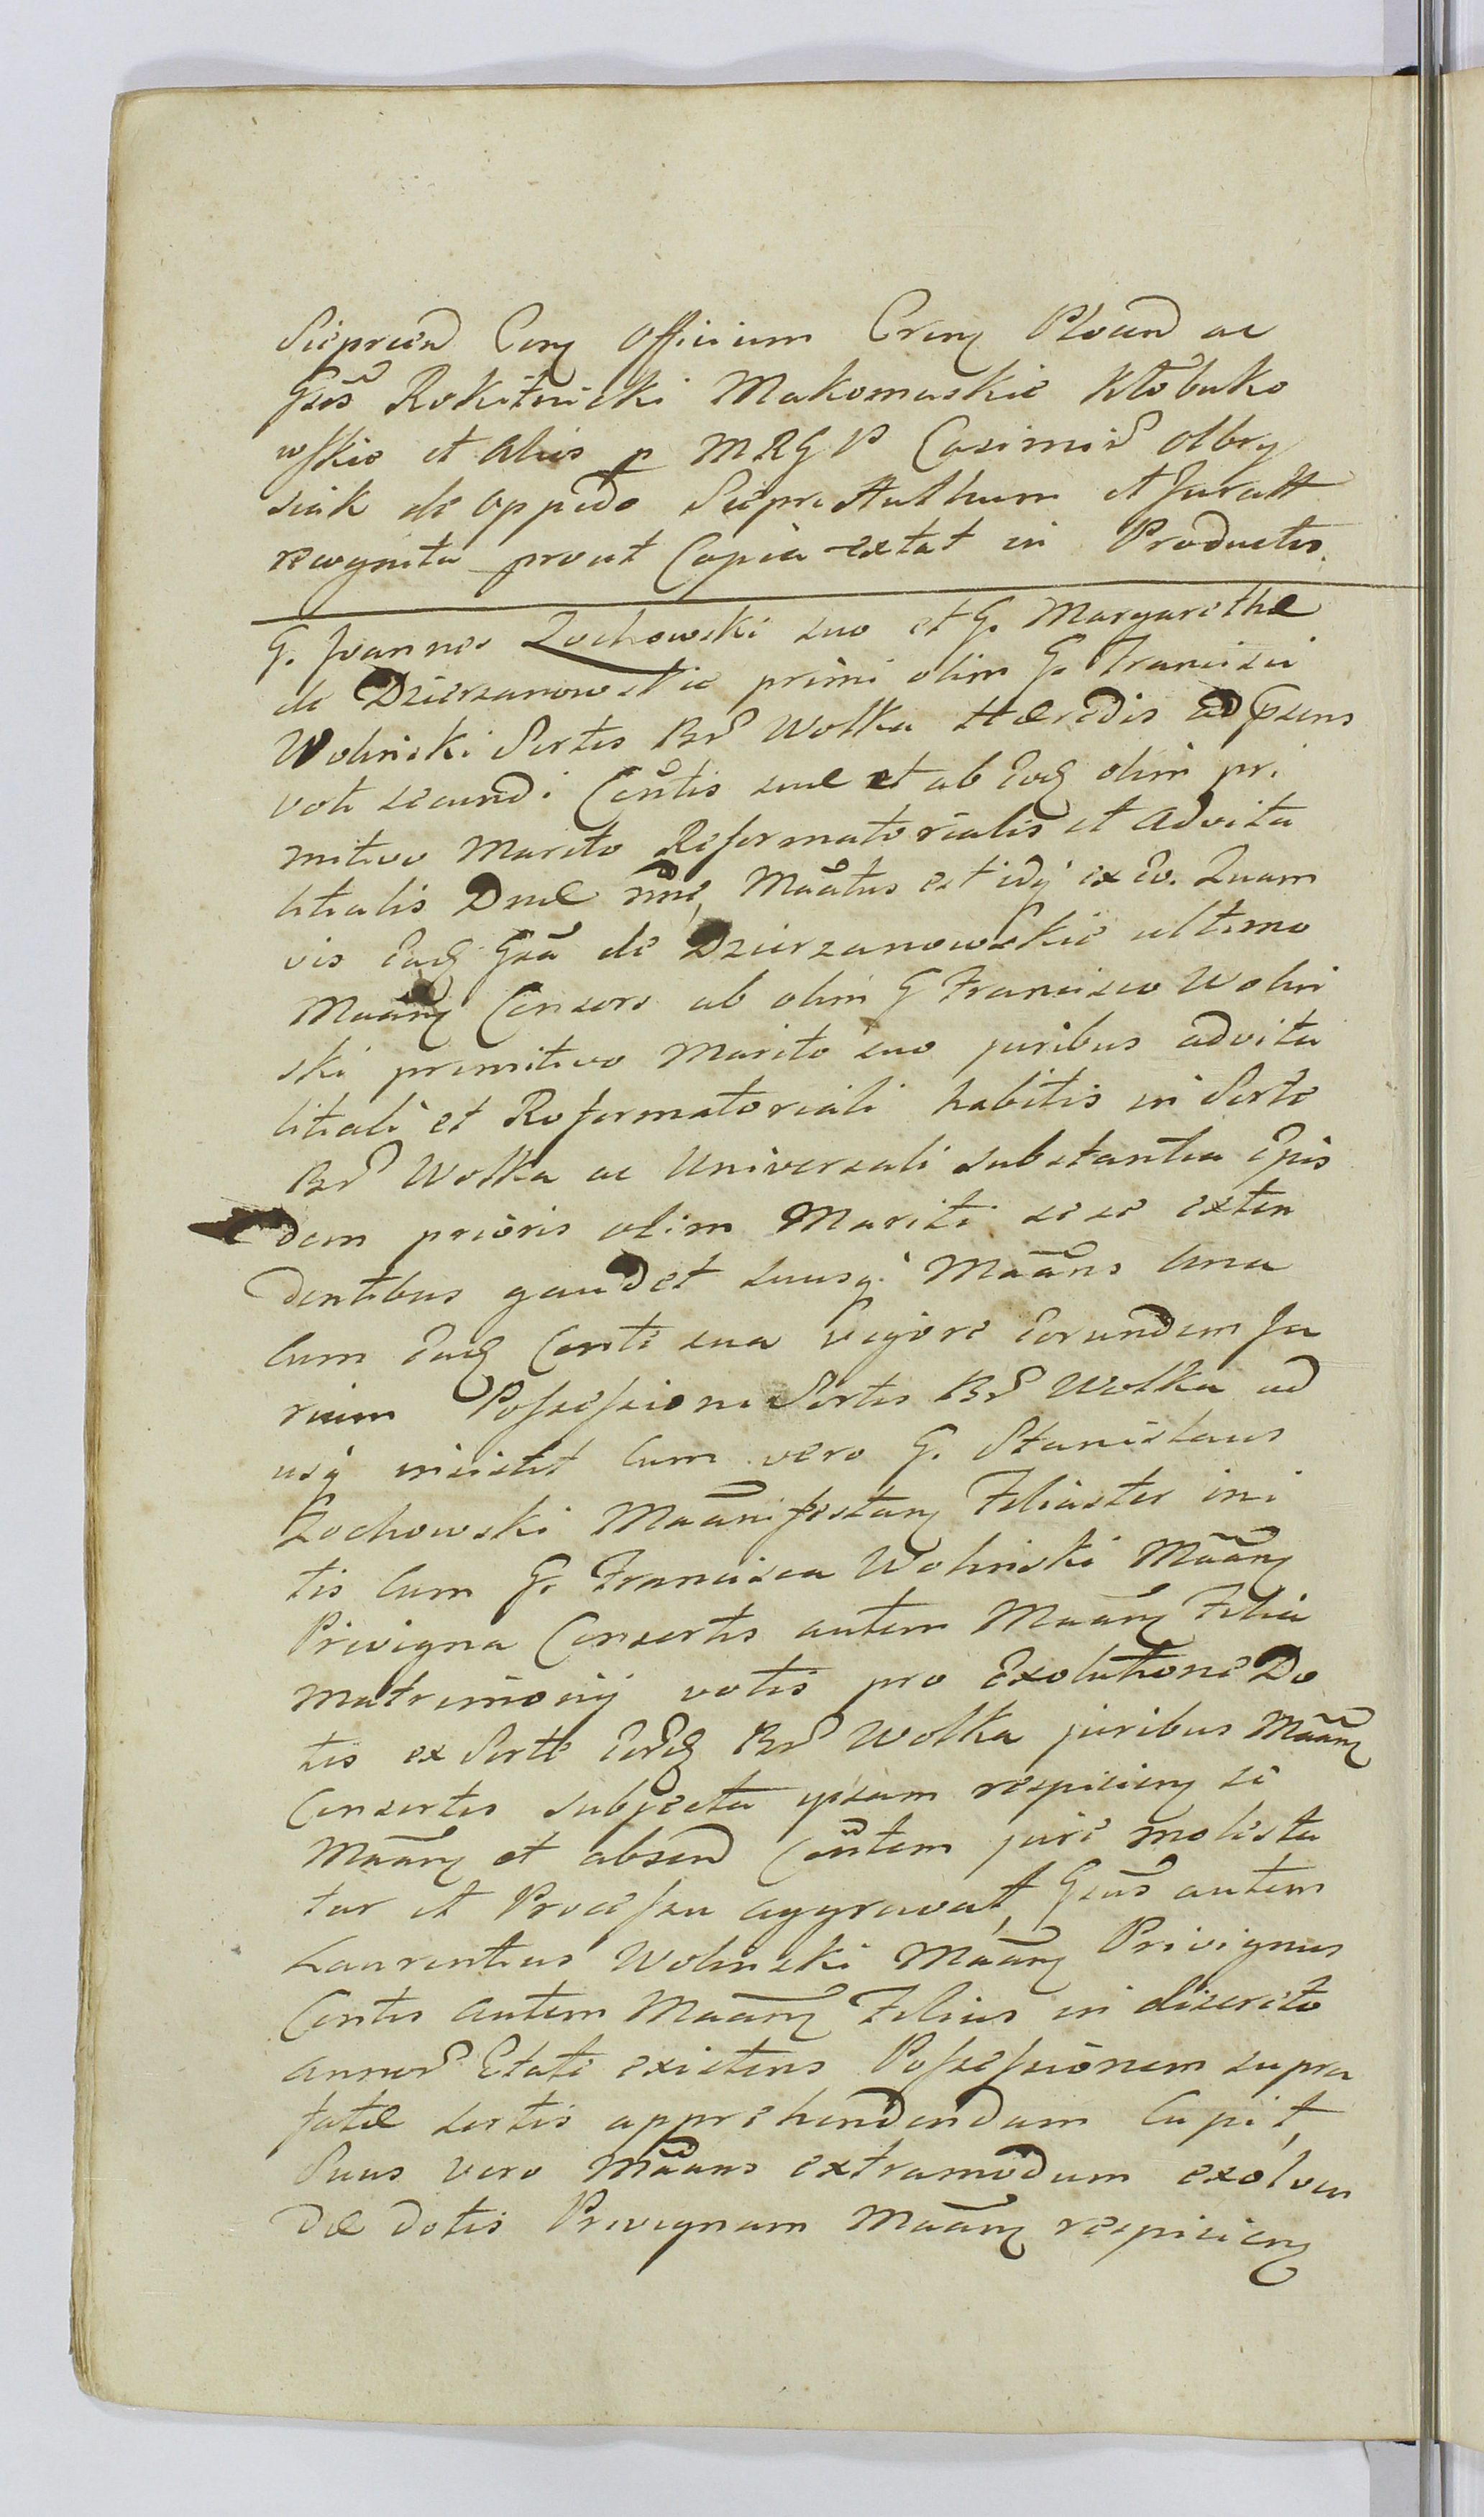 Sieprcen Cong Officium Creng Plocen ac
Gsis Rokitnicki Makomaskie Kłobuko
wskie et aliis p MRGP Casimir olbry
siak de oppido Sieprc Authum et Juratt
recognita prout Copia extat in Productis.
G. Joannes Zochowski suo et G. Margarethæ
de Dzierzanowskie primi olim G. Francisci
Wolinski Sortis Br Wolka Hæredis ad psens
voti secundi Contis suæ et ab Eodg olim pri
mitivo Marito Reformatorialis et Advita
litialis Dnæ nme, Maatus est idq ex Eo. Quam
vis Eadg Gsa de Dzierzanowskie ultimo
Maang Consors ab olim G Francisco Wolin
ski primitivo Marito suo juribus advita
litiali et Reformatoriali habitis in Sorte
Br Wolka ac Universali substantia Epis
dem prioris olim Mariti sese exten
dentibus gaudet suusq Maans una
cum Eadg Conte sua vigore Eorundem Ju
rium Possessioni Sortis Br Wolka ad
usq insistit Cum vero G. Stanislaus
Zochowski Maanifestang Filiaster ini
tis cum G. Francisca Wolinski Maang
Privigna Consortis autem Maang Filia
matrimonij votis pro Exolutione Do
tis ex Sorte Eadg Br Wolka juribus Maang
Consortis subjecta ipsam respicieng se
Maang et absend Contem jure molesta
tur et Processu aggravat, Gsus autem
Laurentius Wolinski Maang Privignus
Contis autem Maang Filius in discreto
annor Etate existens Possessionem supra
fatæ sortis apprehendendam Cupit,
Suus vero Maans extramodum exolven
dæ dotis Privignam Maang respicieng